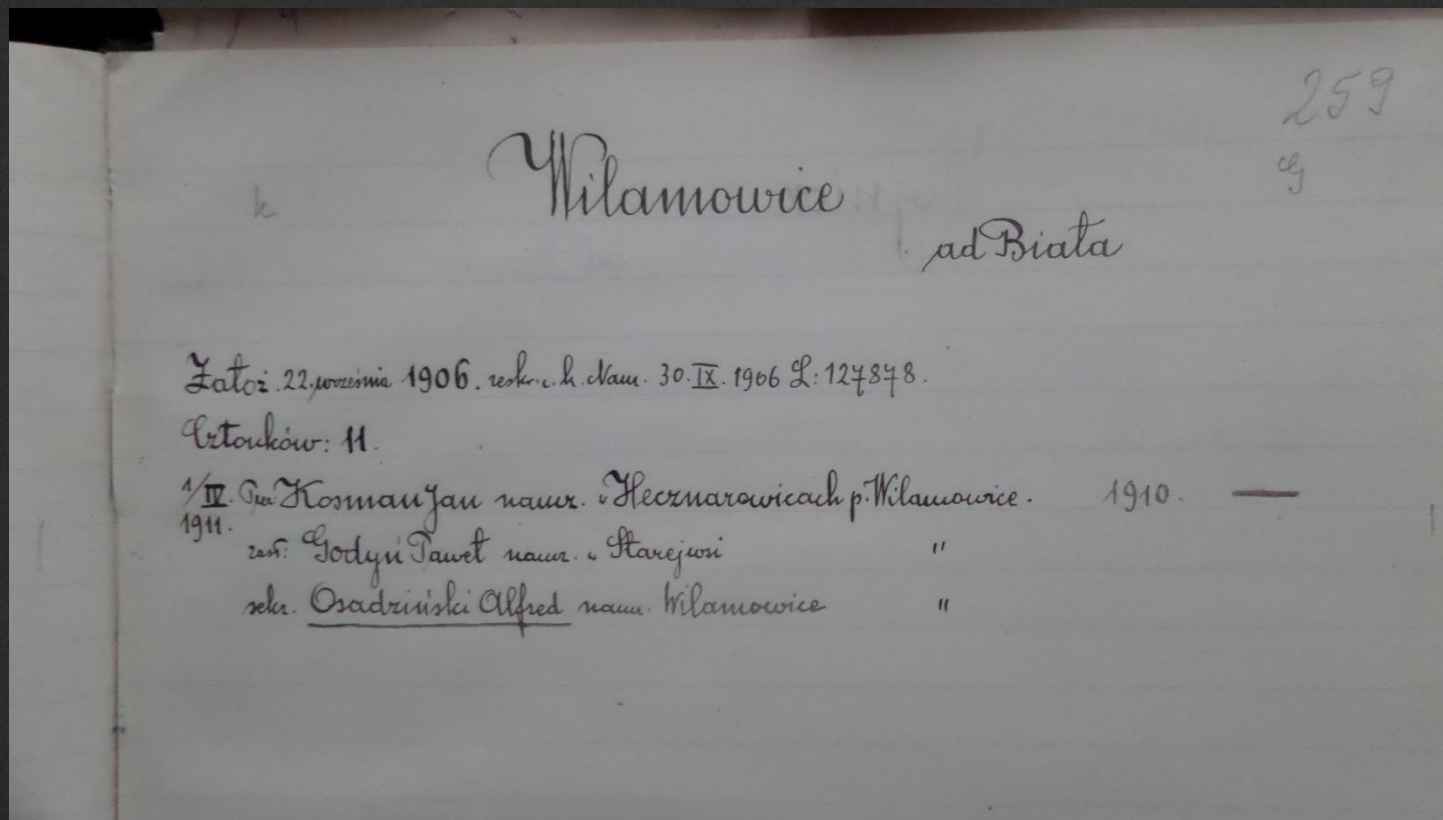 259
G
k
Wilamowice
ad Biała
Założ. 22. września 1906. reskr. c. k. Nam. 30. IX. 1906 L: 127878.
Członków: 11.
1/IV. Prze Kosman Jan naucz. w Hecznarowicach p. Wilamowice. 1910. —
1911.
zast: Godyń Paweł naucz. w Starejwsi "
sekr. Osadziński Alfred naucz. Wilamowice "